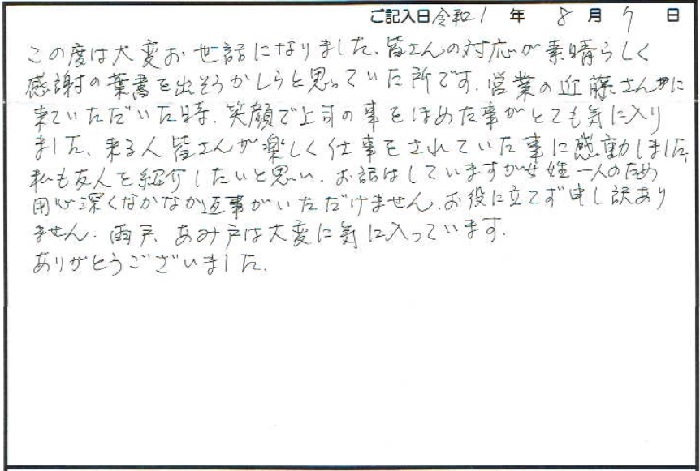 ご記入日 令和1 年 8 月 7 日
この度は大変お世話になりました、皆さんの対応が素晴らしく
感謝の葉書を出そうかしらと思っていた所です。営業の近藤さんに
来ていただいた時、笑顔で上司の事をほめた事がとても気に入り
ました、来る人皆さんが楽しく仕事をされていた事に感動しました
私も友人を紹介したいと思い、お話はしていますが女姓一人のため
用心深くなかなか返事がいただけません、お役に立てず申し訳あり
ません。雨戸、あみ戸は大変に気に入っています。
ありがとうございました。